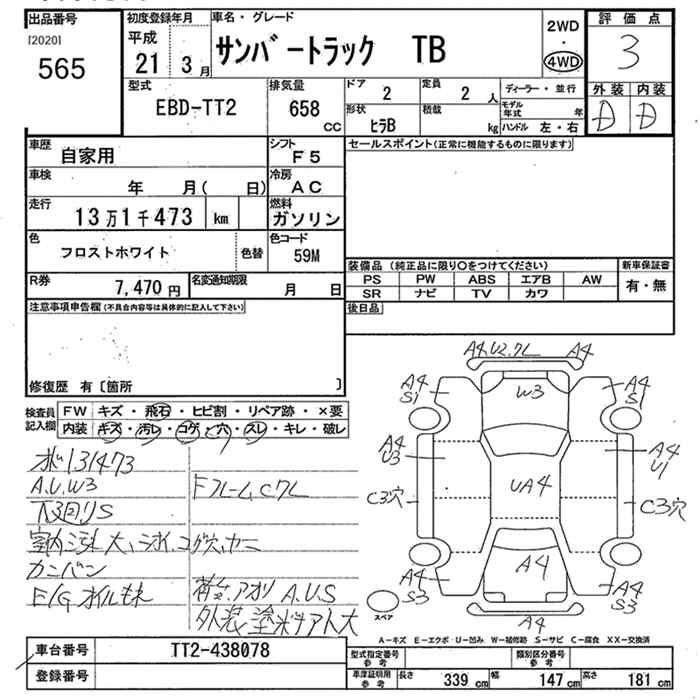 出品番号
[2020]
565
初度登録年月
平成
21 3月
車名・グレード
サンバートラック TB
2WD
・
4WD
評価点
3
外装 内装
D D
型式
EBD-TT2
排気量
658
cc
ドア
2
定員
2 人
形状
ヒラB
積載
kg
ディーラー・並行
モデル年式 年
ハンドル 左・右
車歴
自家用
シフト
F5
車検
年 月( 日)
冷房
AC
走行
13万1千473 km
燃料
ガソリン
色
フロストホワイト
色替
色コード
59M
R券
7,470円
名変通知期限
月 日
セールスポイント(正常に機能するものに限ります)
装備品(純正品に限り○をつけてください)
PS PW ABS エアB AW
SR ナビ TV カワ
新車保証書
有・無
後日品
注意事項申告欄(不具合内容等は具体的に記入して下さい)
修復歴 有〔箇所 〕
検査員記入欄
FW キズ・飛石・ヒビ割・リペア跡・×要
内装 キズ・汚レ・コゲ・穴・スレ・キレ・破レ
131473
A.U.W3
下3回りS
室内汚れ大、コゲ穴、ヤニ
カンバン
E/Gオイルもれ
Fフレーム、Cクレ
アオリ A.U.S
外装塗料アト大
A4.U2.クレ A4
A4
S1
W3
A4
S1
A4
U3
A4
U1
C3穴
UA4
C3穴
A4
S3
A4
A4
S3
A4
スペア
A-キズ E-エクボ U-凹み W-補修跡 S-サビ C-腐食 XX-交換済
車台番号 TT2-438078
登録番号
型式指定番号
参考
類別区分番号
参考
車庫証明用
参考
長さ 339 cm 幅 147 cm 高さ 181 cm